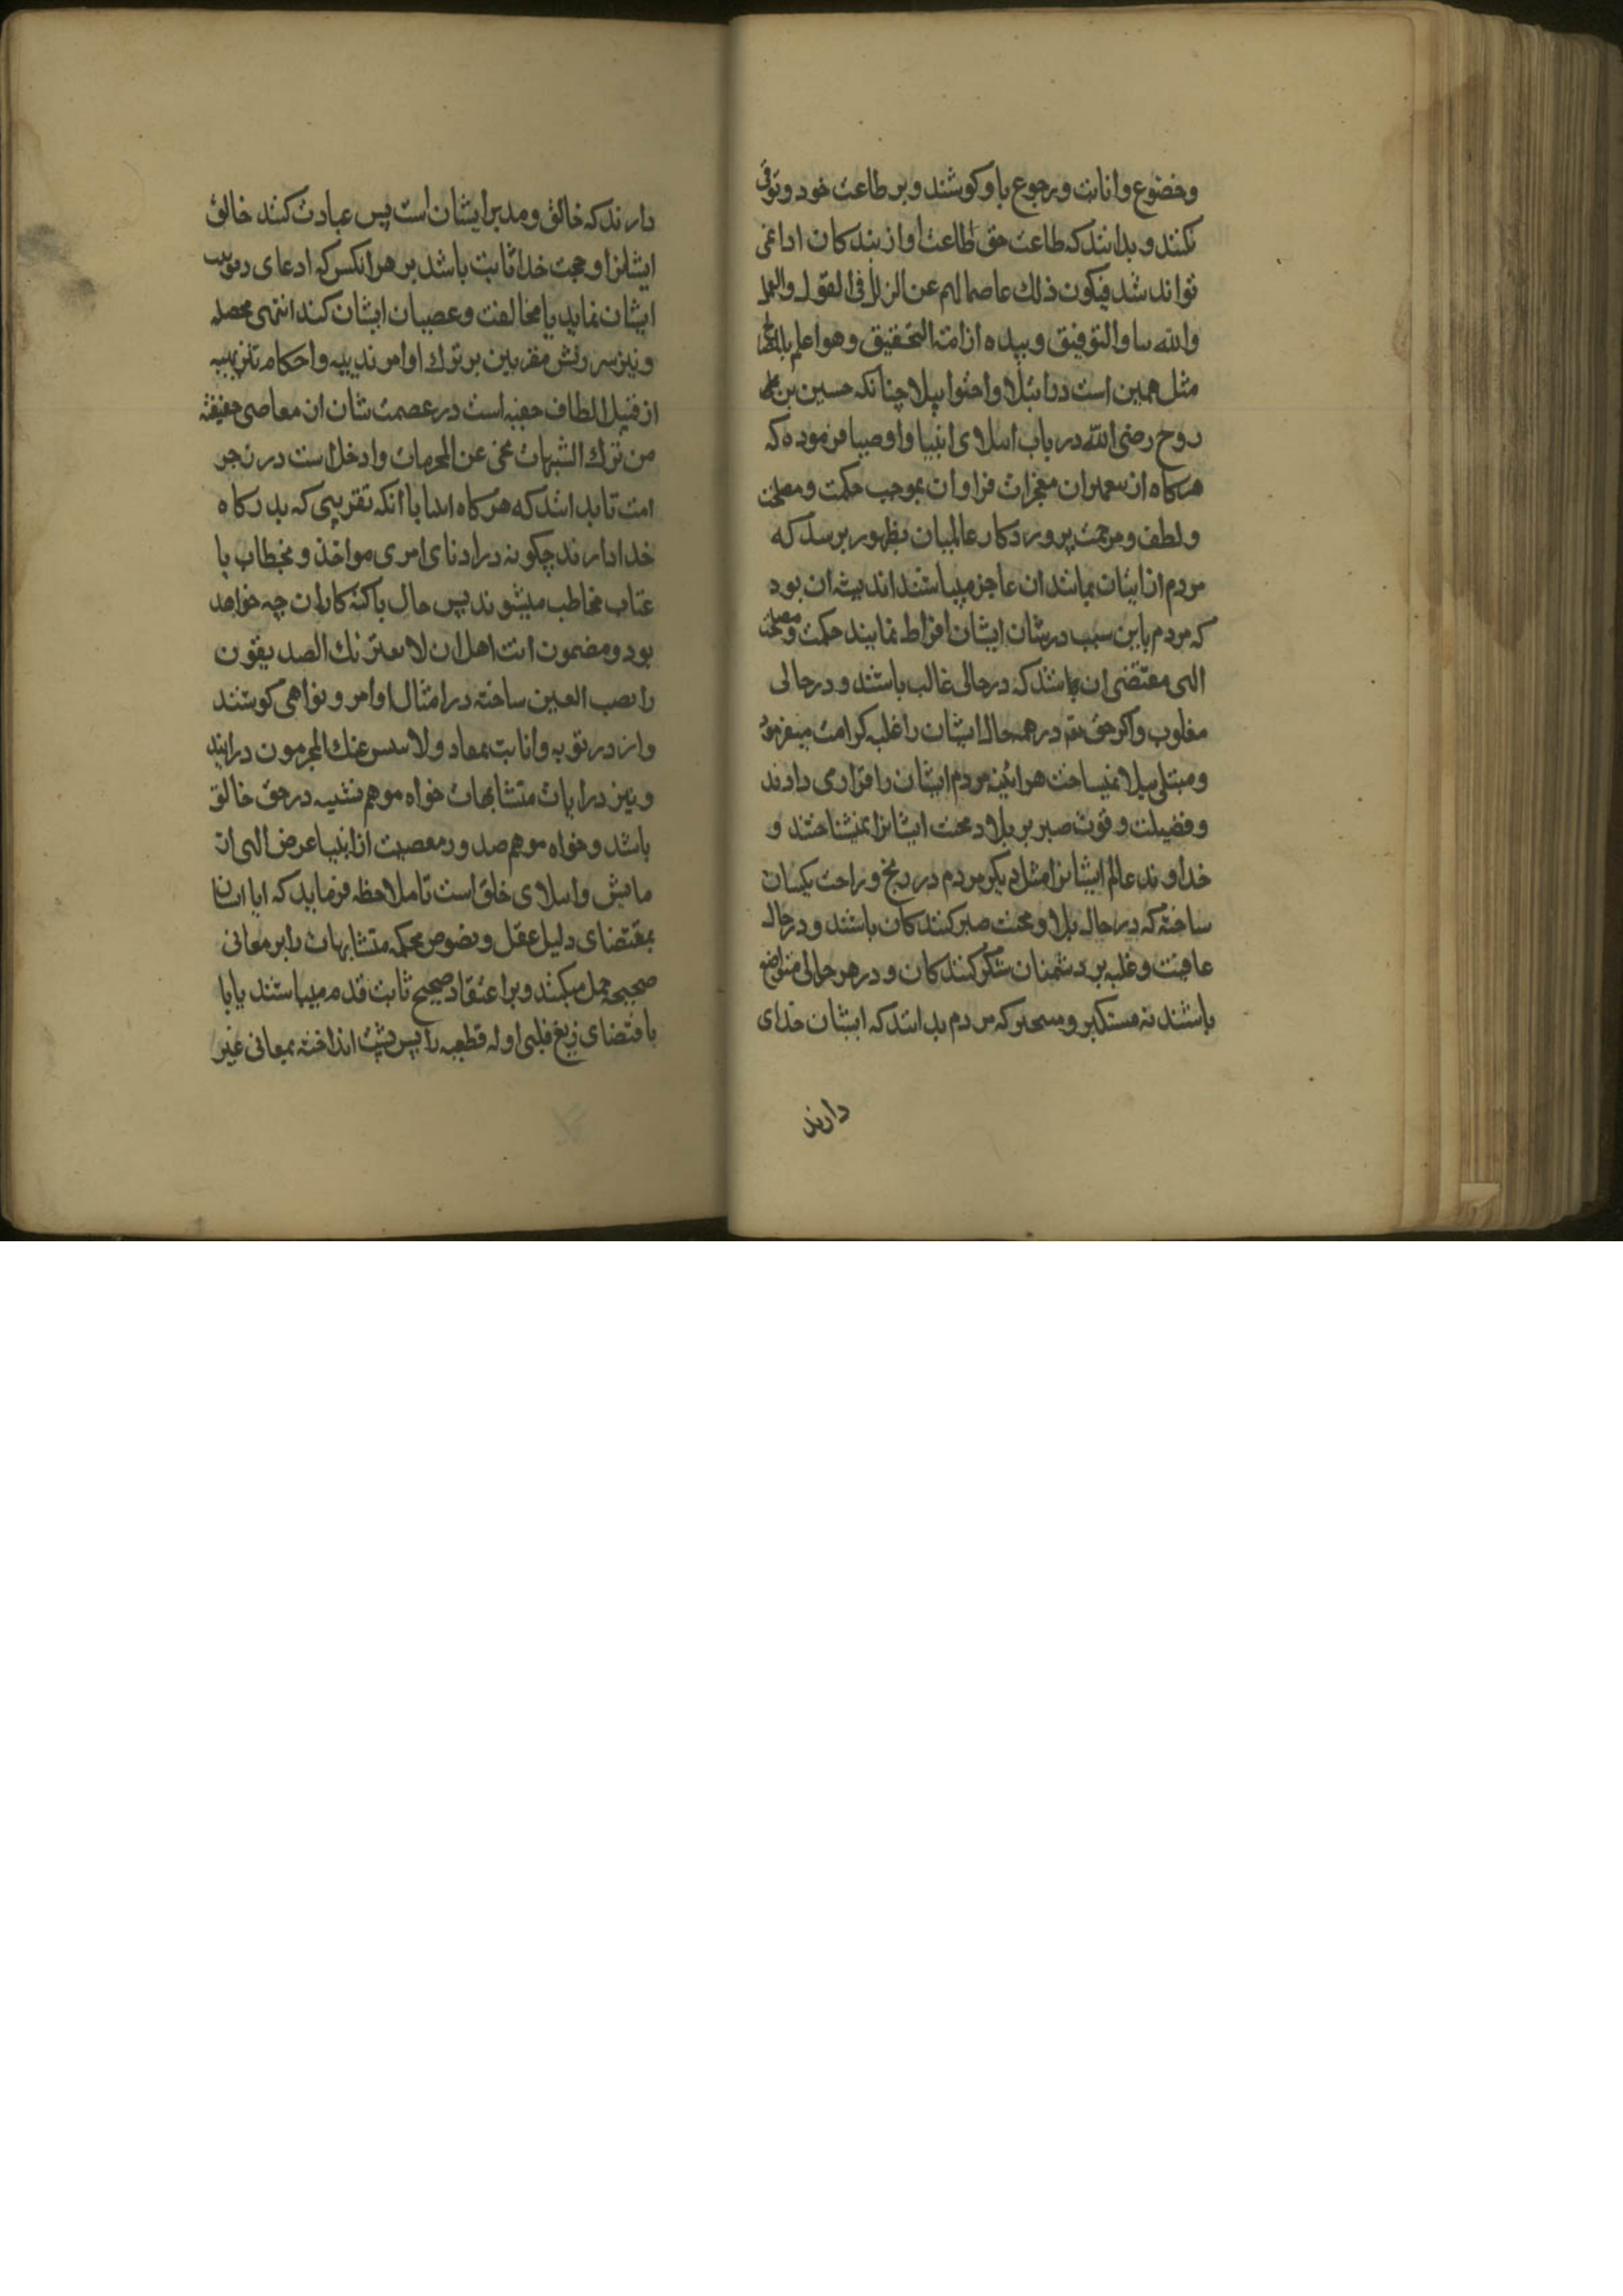 وخضوع وانابت ورجوع باو کوشند و بر طاعت خود وثوقی
نکنند و بدانند که طاعت حق طاعت او از بندکان ادا نمی
تواند شد فیکون ذلك عاصما لهم عن الزلل فی القول والعمل
والله ... التوفیق وبیده ازمة التحقیق وهو اعلم
مثل همین است در ابتلا ... چنانکه حسین بن
روح رضی الله در باب ابتلای انبیا واوصیا فرموده که
هرکاه ... معجزات فراوان بموجب حکمت ومصلحت
ولطف ومرحمت پروردکار عالمیان بظهور برسد که
مردم از اتیان بمانند ان عاجز میباشند اندیشه ان بود
که مردم باین سبب در شان ایشان افراط نمایند حکمت ومصلحت
الهی مقتضی ان باشد که در حالی غالب باشند و در حالی
مغلوب واکر حق تعم در همه حال ایشان را غلبه کرامت میفرمود
ومبتلی ببلا نمیساخت هر اینه مردم ایشان را قراری دادند
وفضیلت وقوت صبر بر بلا و محنت ایشانرا نمیشناختند و
خداوند عالم ایشانرا مثل دیکر مردم در رنج و راحت یکسان
ساخته که در حال بلا و محنت صبر کنندکان باشند و در حال
عافیت وغلبه بر دشمنان شکر کنندکان و در هر حالی متواضع
باشند نه مستکبر و متجبر که مردم بدانند که ایشان خدای
دارند
دارند که خالق و مدبر ایشان است پس عبادت کنند خالق
ایشانرا و حجت خدا ثابت باشد بر هر انکس که ادعای ربوبیت
ایشان نماید یا مخالفت وعصیان ایشان کند انتهی محصله
ونیز سرزنش مقربین بر ترك اوامر ندبیه واحکام تنزیهیه
از قبیل الطاف خفیه است در عصمت شان از معاصی حقیقة
من ترك الشبهات نجی عن المحرمات وادخل است در زجر
امت تا بدانند که هرکاه انبیا با انکه تقربی که بدرکاه
خدا دارند چکونه در ادنای امری مواخذ و بخطاب با
عتاب مخاطب میشوند پس حال باکنه کاران چه خواهد
بود و مضمون ... الصدیقون
را نصب العین ساخته در امتثال اوامر و نواهی کوشند
واز در توبه وانابت بمفاد ولا ... المجرمون درایند
ونیز در ایات متشابهات خواه موهم تشبیه در حق خالق
باشد و خواه موهم صدور معصیت از انبیا غرض الهی از
مایش وابتلای خلق است تا ملاحظه فرماید که ایا ایشان
بمقتضای دلیل عقل ونصوص محکمه متشابهات را بر معانی
صحیحه حمل میکنند و بر اعتقاد صحیح ثابت قدم میباشند یا با
باقتضای زیغ قلبی ادله قطعیه را پس پشت انداخته بمعانی غیر